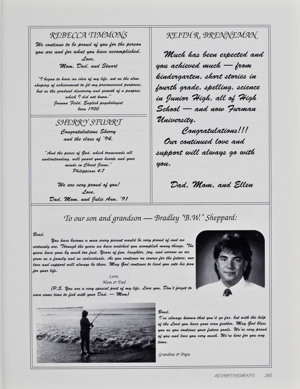 REBECCA TIMMONS
We continue to be proud of you for the person
you are and for what you have accomplished.
Love,
Mom, Dad, and Stuart
"I began to have an idea of my life, not as the slow
shaping of achievement to fit my preconceived purposes,
but as the gradual discovery and growth of a purpose
which I did not know."
Joanna Field, English psychologist
born 1900
SHERRY STUART
Congratulations Sherry
and the class of '94.
"And the peace of God, which transcends all
understanding, will guard your hearts and your
minds in Christ Jesus."
Philippians 4:7
We are very proud of you!
Love,
Dad, Mom, and Julie Ann, '91
KEITH R. BRENNEMAN
Much has been expected and
you achieved much — from
kindergarten, short stories in
fourth grade, spelling, science
in Junior High, all of High
School — and now Furman
University.
Congratulations!!!
Our continued love and
support will always go with
you.
Dad, Mom, and Ellen
To our son and grandson — Bradley "B.W." Sheppard:
Brad,
You have become a man every parent would be proud of and we
certainly are. Through the years we have watched you accomplish many things. The
years have gone by much too fast. Years of fun, laughter, joy, and sorrow as we
grew as a family and as individuals. As you continue on course for the future, our
love and support will always be there. May God continue to lead you into his plan
for your life.
Love,
Mom & Dad
(P.S. You are a very special part of my life. Love you. Don't forget to
save some time to fish with your Dad. — Mom)
Brad,
I've always known that you'd go far, but with the help
of the Lord you have gone even further. May God bless
you as you continue your future goals. We're very proud
of you and love you very much. We're here for you any
time.
Grandma & Papa
ADVERTISEMENTS 265